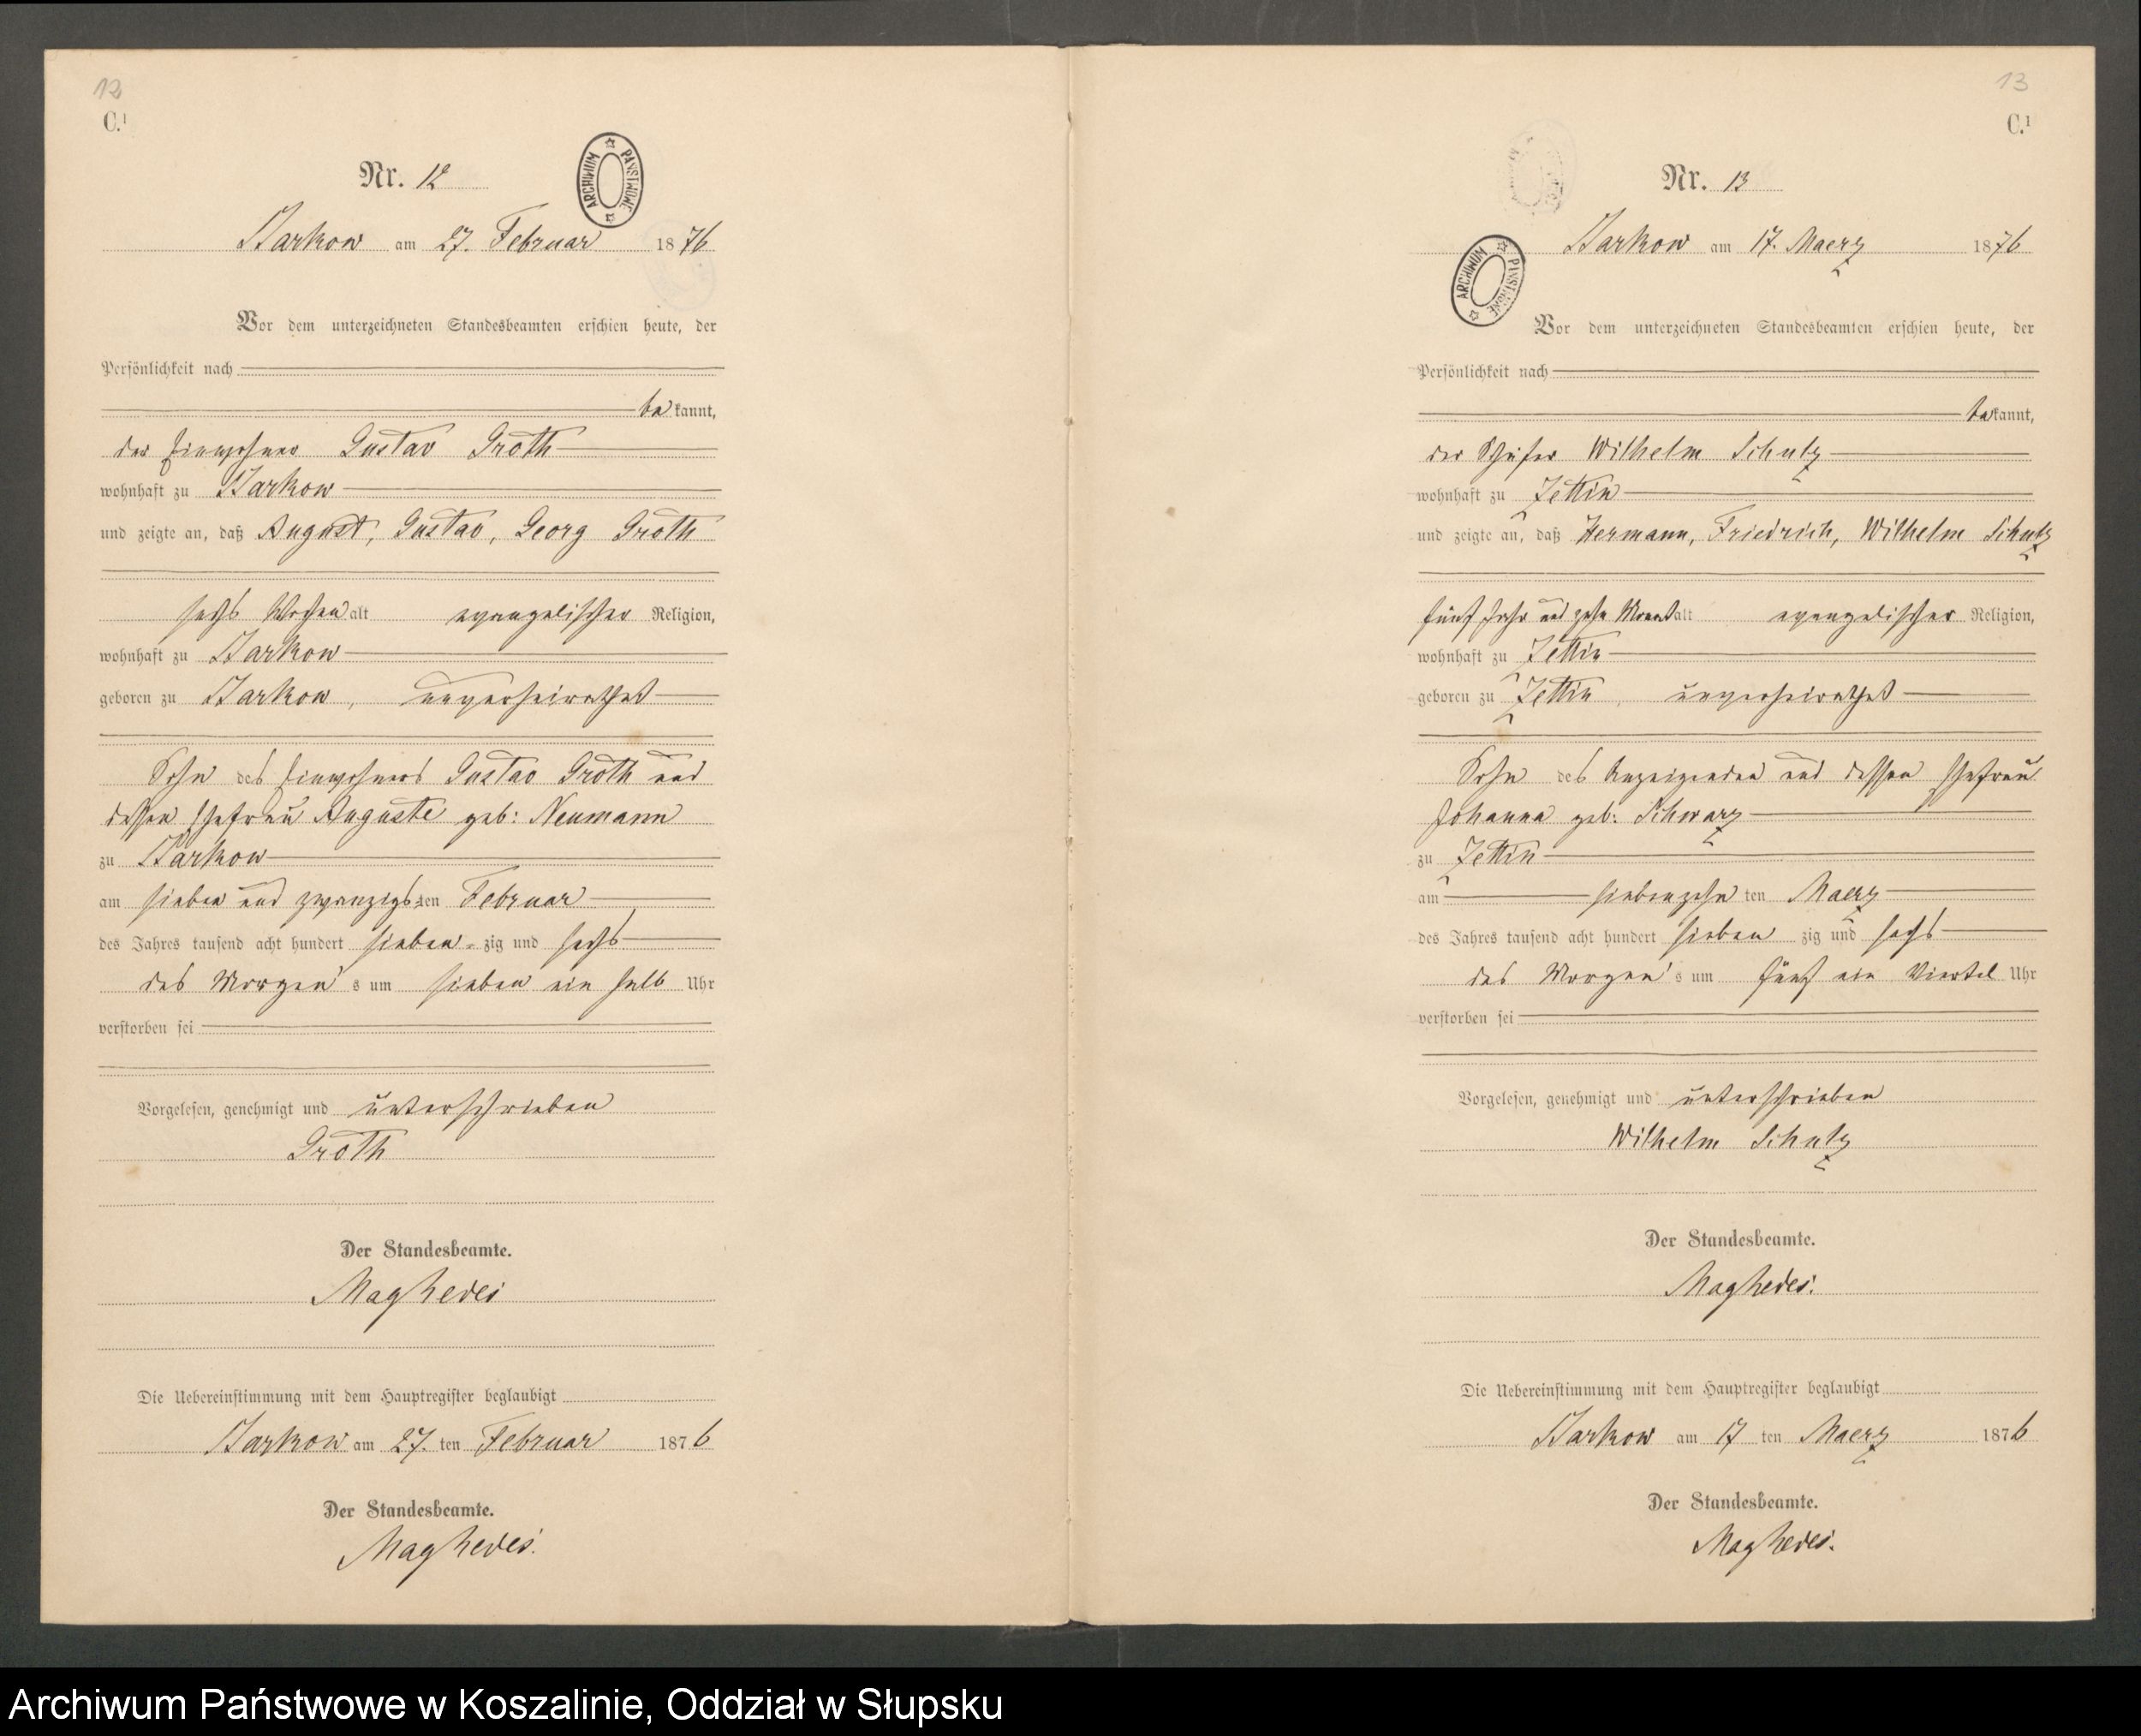 12
C.¹
Nr. 12
ARCHIWUM PAŃSTWOWE
Barkow am 27. Februar 1876
Vor dem unterzeichneten Standesbeamten erschien heute, der
Persönlichkeit nach
bekannt,
der Einwohner Gustav Groth
wohnhaft zu Barkow
und zeigte an, daß August, Gustav, Georg Groth
sechs Wochen alt evangelischer Religion,
wohnhaft zu Barkow
geboren zu Barkow, unverheirathet
Sohn des Einwohners Gustav Groth und
dessen Ehefrau Auguste geb: Neumann
zu Barkow
am sieben und zwanzigsten Februar
des Jahres tausend acht hundert sieben-zig und sechs
des Morgen's um sieben ein halb Uhr
verstorben sei
Vorgelesen, genehmigt und unterschrieben
Groth
Der Standesbeamte.
Die Uebereinstimmung mit dem Hauptregister beglaubigt
Barkow am 27. ten Februar 1876
Der Standesbeamte.
13
C.¹
Nr. 13
ARCHIWUM PAŃSTWOWE
Barkow am 17. Maerz 1876
Vor dem unterzeichneten Standesbeamten erschien heute, der
Persönlichkeit nach
bekannt,
der Schäfer Wilhelm Schulz
wohnhaft zu Zettin
und zeigte an, daß Hermann, Friedrich, Wilhelm Schulz
fünf Jahr und zehn Monat alt evangelischer Religion,
wohnhaft zu Zettin
geboren zu Zettin, unverheirathet
Sohn des Anzeigenden und dessen Ehefrau
Johanna geb: Schwarz
zu Zettin
am siebenzehn ten Maerz
des Jahres tausend acht hundert sieben zig und sechs
des Morgen's um fünf ein Viertel Uhr
verstorben sei
Vorgelesen, genehmigt und unterschrieben
Wilhelm Schulz
Der Standesbeamte.
Die Uebereinstimmung mit dem Hauptregister beglaubigt
Barkow am 17 ten Maerz 1876
Der Standesbeamte.
Archiwum Państwowe w Koszalinie, Oddział w Słupsku